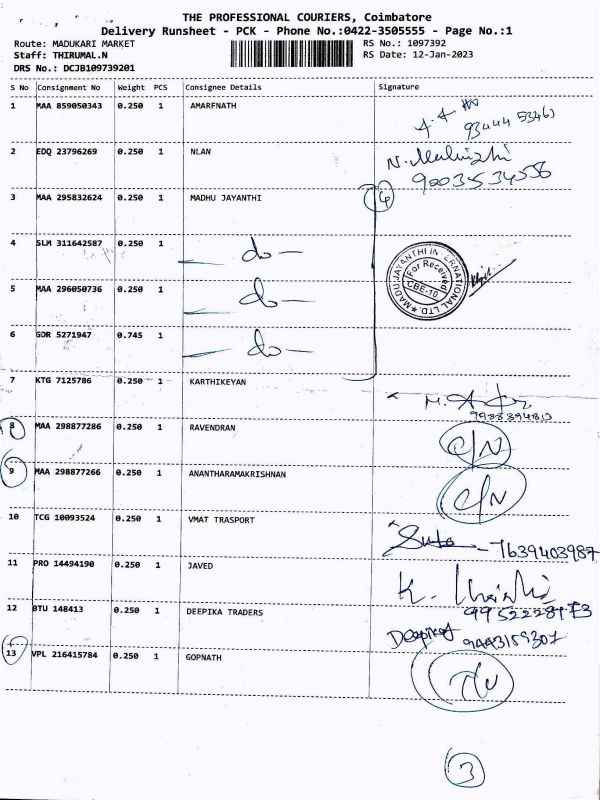 THE PROFESSIONAL COURIERS, Coimbatore
Delivery Runsheet - PCK - Phone No.:0422-3505555 - Page No.:1
Route: MADUKARI MARKET
RS No.: 1097392
Staff: THIRUMAL.N
RS Date: 12-Jan-2023
DRS No.: DCJB109739201
S No Consignment No Weight PCS Consignee Details Signature
1 MAA 859050343 0.250 1 AMARFNATH
93444 53463
2 EDQ 23796269 0.250 1 NLAN
N.
3 MAA 295832624 0.250 1 MADHU JAYANTHI
4
4 SLM 311642587 0.250 1 - do -
MADUJAYANTHI INTERNATIONAL LTD.
For Received
CBE-10
5 MAA 296050736 0.250 1 - do -
6 GDR 5271947 0.745 1 - do -
7 KTG 7125786 0.250 1 KARTHIKEYAN
8 MAA 298877286 0.250 1 RAVENDRAN C/N
9 MAA 298877266 0.250 1 ANANTHARAMAKRISHNAN C/N
10 TCG 10093524 0.250 1 VMAT TRASPORT
- 7639403987
11 PRO 14494190 0.250 1 JAVED
K.
12 BTU 148413 0.250 1 DEEPIKA TRADERS
9443159307
13 VPL 216415784 0.250 1 GOPNATH
3